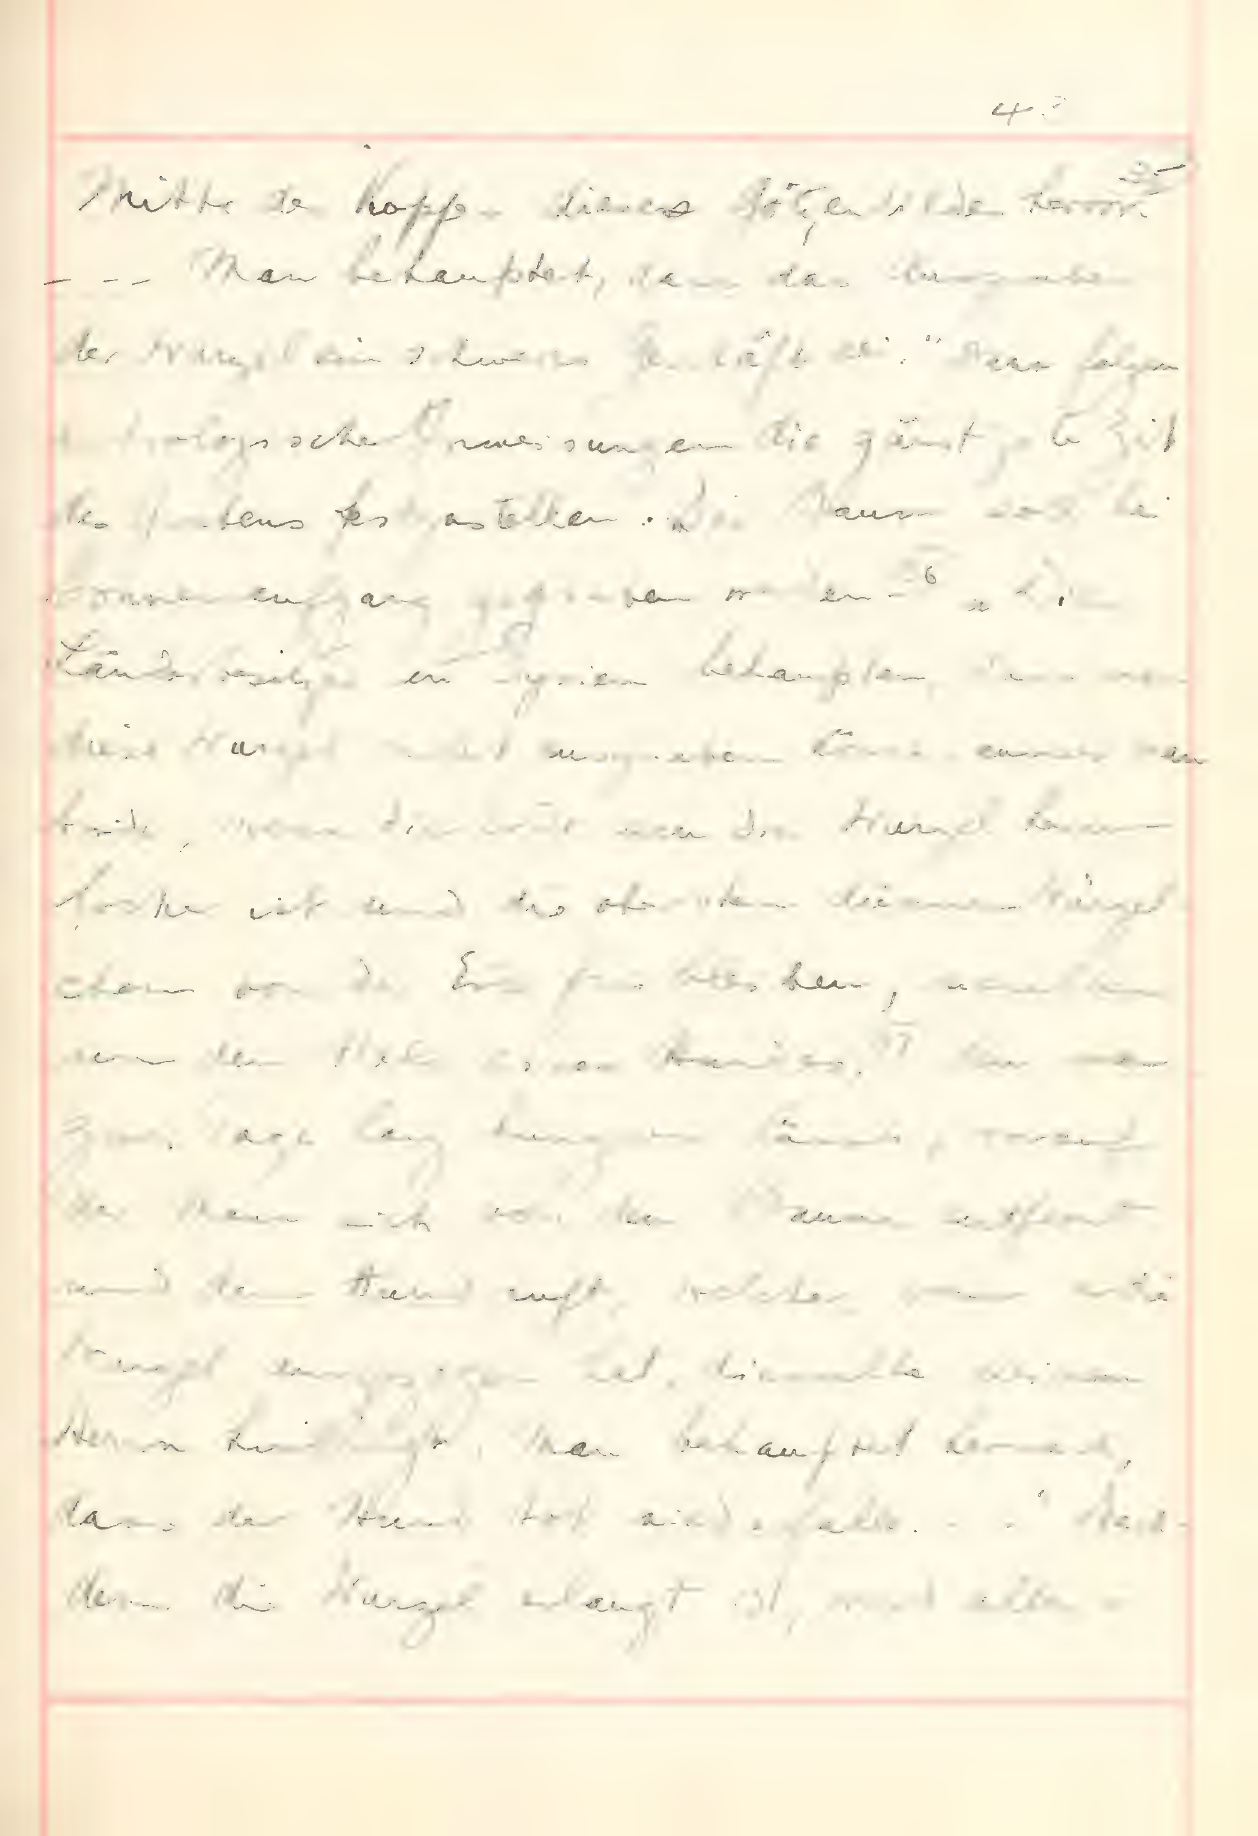 43
Mitte des Kopfes dieses Götzenbildes hervor. 35
--- Man behauptet, dass das Ausgraben
der Wurzel ein schweres Geschäft sei." Dann folgen
astrologische Anweisungen die günstigste Zeit
des Grabens festzustellen. „Der Baum soll bei
Sonnenaufgang gegraben werden - 36 „Die
in Syrien behaupten, dass man
diese Wurzel nicht ausgraben könne, man
, wenn die Erde um die Wurzel herum
locker ist und die obersten dünnen Würzel-
chen von der Erde frei bleiben,
an den Hals eines Hundes, 37 den man
zwei Tage lang hungern lässt, worauf
der Mann sich von dem Baume entfernt
und dem Hund ruft, welcher, wenn er die
Wurzel ausgezogen hat, dieselbe seinem
Herrn hinbringt. Man behauptet hernach,
dass der Hund tot niederfalle. - - " Nach-
dem die Wurzel erlangt ist, wird aller-